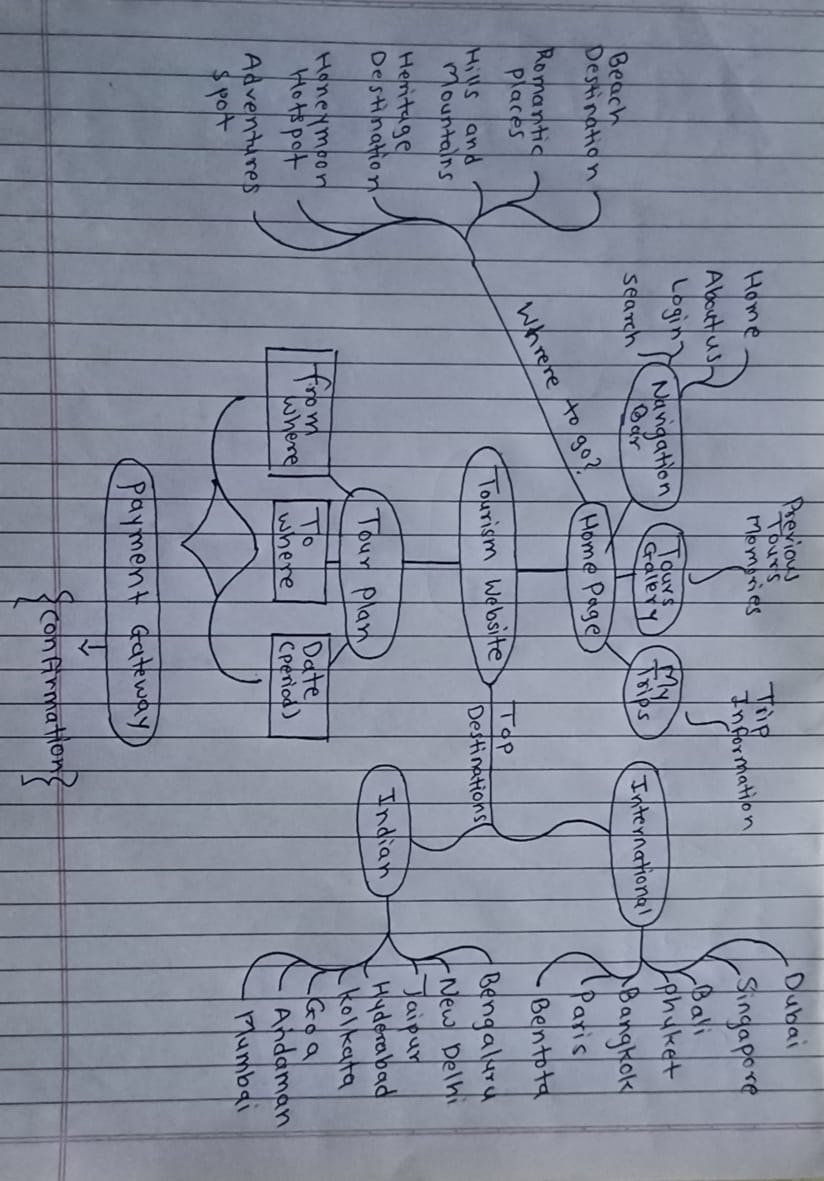 Previous
Tours
Memories
Trip
Information
Home
About us
Login
search
Navigation
Bar
Tours
Gallery
My
Trips
Home Page
Where to go?
Beach
Destination
Romantic
places
Hills and
Mountains
Heritage
Destination
Honeymoon
Hotspot
Adventures
spot
Tourism Website
Top
Destinations
International
Dubai
Singapore
Bali
Phuket
Bangkok
Paris
Bentota
Indian
Bengaluru
New Delhi
Jaipur
Hyderabad
Kolkata
Goa
Andaman
Mumbai
Tour plan
from
where
To
where
Date
(period)
Payment Gateway
{Confirmation}